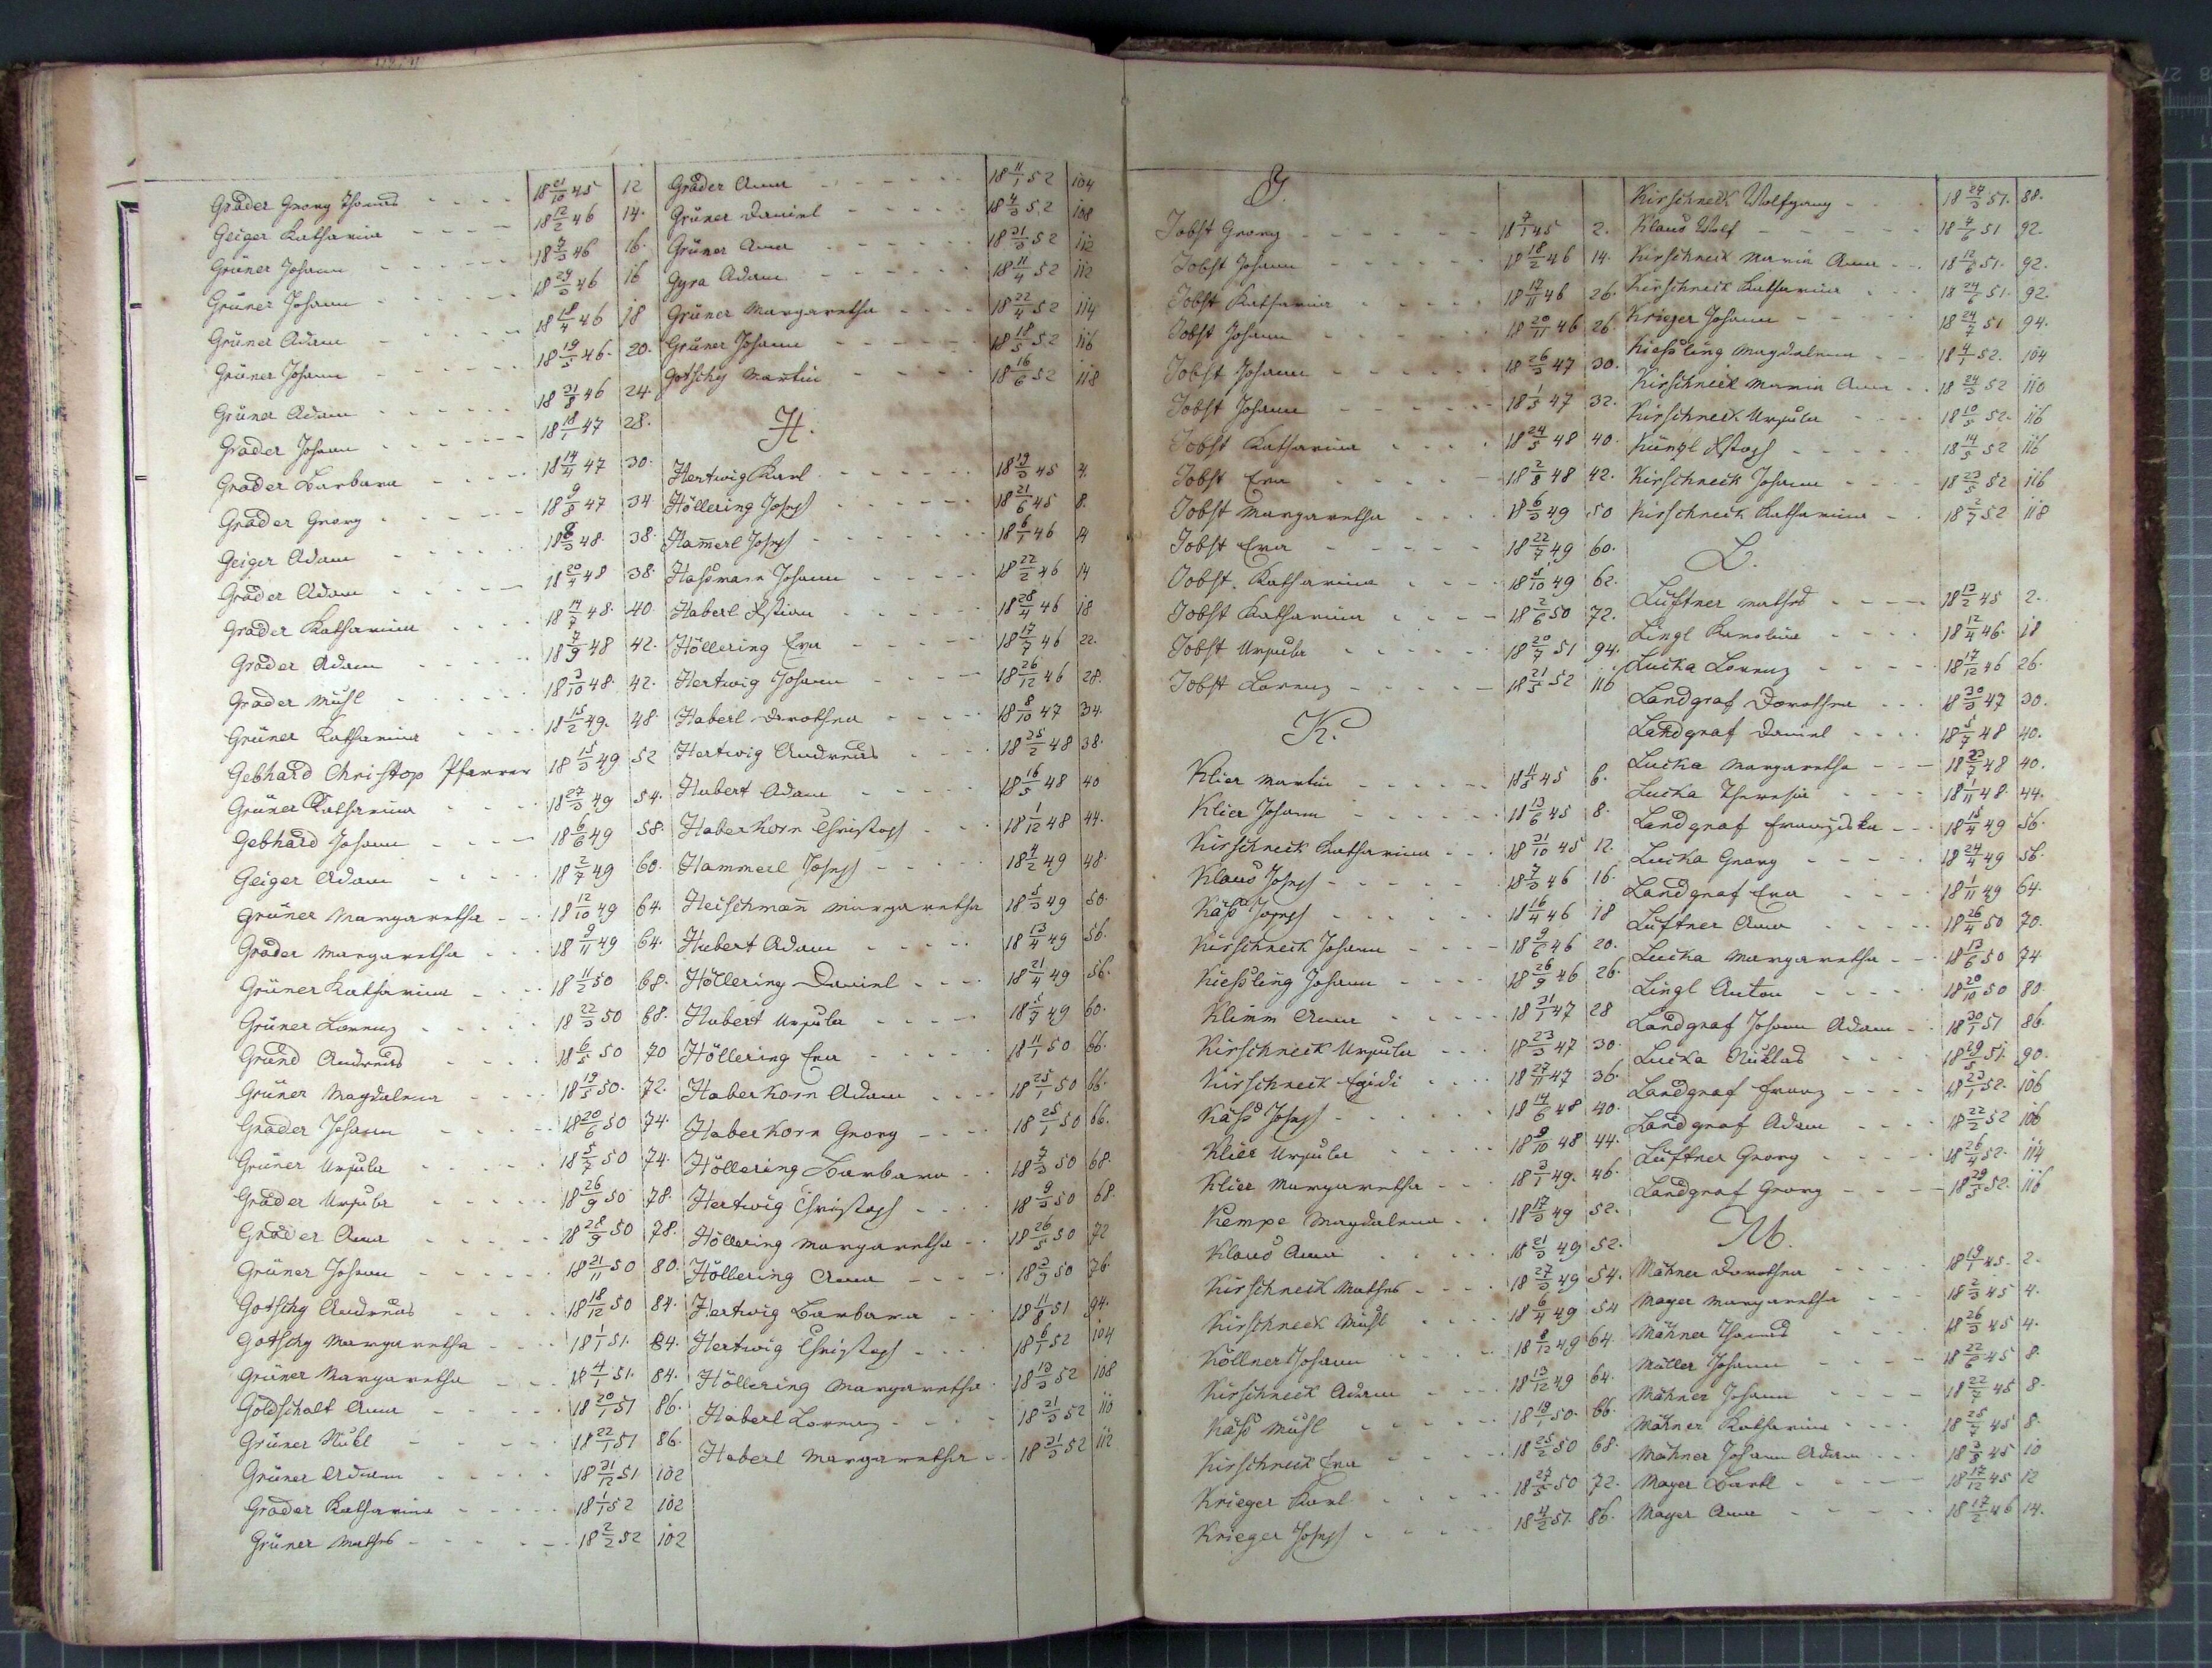 Gräder Georg Thomas - - - - 18 21/10 45 12
Geiger Katharina - - - - 18 12/2 46 14.
Grüner Johann - - - - 18 9/3 46 16.
Grüner Johann - - - - 18 29/3 46 16
Grüner Adam - - - - 18 18/4 46 18
Grüner Johann - - - - 18 19/5 46. 20.
Grüner Adam - - - - 18 31/8 46 24.
Grader Johann - - - - 18 18/1 47 28.
Grader Barbara - - - - 18 14/4 47 30.
Grader Georg - - - - 18 9/8 47 34
Geiger Adam - - - - 18 8/3 48. 38.
Gräder Adam - - - - 18 20/4 48 38.
Grader Katharina - - - - 18 14/7 48. 40.
Grader Adam - - - - 18 7/9 48 42.
Grader Michl - - - - 18 3/10 48. 42.
Grüner Katharina - - - - 18 15/2 49. 48.
Gebhard Christop Pfarrer 18 15/3 49 52
Grüner Katharina - - - - 18 27/3 49 54.
Gebhard Johann - - - - 18 6/6 49 58.
Geiger Adam - - - - 18 2/7 49 60.
Grüner Margaretha - - - 18 12/10 49 64.
Gräder Margaretha - - - 18 9/11 49 64.
Grüner Katharina - - - - 18 11/2 50 68.
Grüner Lorenz - - - - 18 22/3 50 68.
Gründ Andreas - - - - 18 6/5 50 70
Grüner Magdalena - - - - 18 19/5 50. 72.
Grader Johann - - - - 18 20/6 50 74.
Grüner Ursula - - - - 18 5/7 50 74.
Gräder Ursula - - - - 18 26/9 50 78.
Gräder Anna - - - - 18 28/9 50 78.
Grüner Johann - - - - 18 21/11 50 80.
Gotschy Andreas - - - - 18 18/12 50 84.
Gotschy Margaretha - - - 18 1/1 51. 84.
Grüner Margaretha - - - 18 4/1 51. 84.
Goldschalt Anna - - - - 18 20/1 51 86.
Grüner Nikl - - - - 18 22/1 51 86.
Grüner Adam - - - - 18 31/12 51 102
Grader Katharina - - - - 18 1/1 52 102
Grüner Mathes - - - - 18 2/2 52 102
Gräder Anna - - - - 18 11/1 52 104
Grüner Daniel - - - - 18 4/3 52 108
Grüner Anna - - - - 18 31/3 52 112
Gyra Adam - - - - 18 11/4 52 112
Grüner Margaretha - - - - 18 22/4 52 114
Grüner Johann - - - - 18 18/5 52 116
Gotschy Martin - - - - 18 16/6 52 118
H.
Hertwig Karl - - - - 18 19/3 45 4.
Höllering Joseph - - - - 18 21/6 45 8.
Ham̅erl Joseph - - - - 18 6/1 46 14
Johann - - - - 18 22/2 46 14
Haberl - - - - 18 28/4 46 18
Höllering Eva - - - - 18 17/7 46 22.
Hertwig Johann - - - - 18 26/12 46 28.
Haberl Dorothea - - - - 18 8/10 47 34.
Hertwig Andreas - - - - 18 25/2 48 38.
Hubert Adam - - - - 18 16/5 48 40
Haberkorn Christoph - - 18 1/12 48 44.
Hammerl Joseph - - - - 18 4/2 49 48.
Heischman̅ Margaretha 18 5/3 49 50.
Hubert Adam - - - - 18 13/4 49 56.
Höllering Daniel - - - - 18 21/4 49 56.
Hubert Ursula - - - - 18 5/7 49 60.
Höllering Eva - - - - 18 11/1 50 66.
Haberkorn Adam - - - - 18 25/1 50 66.
Haberkorn Georg - - - - 18 25/1 50 66.
Höllering Barbara - - 18 7/3 50 68.
Hertwig Christoph - - - - 18 9/3 50 68.
Höllering Margaretha - - 18 26/5 50 72
Höllering Anna - - - - 18 3/9 50 76.
Hertwig Barbara - - 18 11/8 51 94.
Hertwig Christoph - - - - 18 6/1 52 104
Höllering Margaretha - 18 13/3 52 108
Haberl Lorenz - - - - 18 21/3 52 110
Haberl Margaretha - - 18 31/3 52 112
J.
Jobst Georg - - - - 18 7/1 45 2.
Jobst Johann - - - - 18 18/2 46 14.
Jobst Katharina - - - - 18 17/11 46 26.
Jobst Johann - - - - 18 20/11 46 26.
Jobst Johann - - - - 18 26/3 47 30.
Jobst Johann - - - - 18 1/5 47 32.
Jobst Katharina - - - - 18 24/5 48 40.
Jobst Eva - - - - 18 2/8 48 42.
Jobst Margaretha - - - - 18 6/3 49 50
Jobst Eva - - - - 18 22/7 49 60.
Jobst Katharina - - - - 18 5/10 49 62.
Jobst Katharina - - - - 18 2/6 50 72.
Jobst Ursula - - - - 18 20/7 51 94.
Jobst Lorenz - - - - 18 21/5 52 116
K.
Klier Martin - - - - 18 11/5 45 6.
Klier Johann - - - - 18 13/6 45 8.
Kirschneck Katharina - - - 18 31/10 45 12.
Klaus Joseph - - - - 18 7/3 46 16.
Käss Joseph - - - - 18 16/4 46 18
Kirschneck Johann - - - - 18 9/6 46 20.
Kiessling Johann - - - - 18 26/9 46 26.
Klimm Anna - - - - 18 31/1 47 28
Kirschneck Ursula - - - 18 23/3 47 30.
Kirschneck Egidi - - - - 18 27/11 47 36.
Käss Joseph - - - - 18 14/6 48 40.
Klier Ursula - - - - 18 9/10 48 44.
Klier Margaretha - - - 18 3/1 49. 46.
Kempe Magdalena - - 18 17/3 49 52.
Klaus Anna - - - - 18 21/3 49 52.
Kirschneck Mathes - - - 18 27/3 49 54.
Kirschneck Michl - - - - 18 6/4 49 54
Köllner Johann - - - - 18 8/12 49 64.
Kirschneck Adam - - - 18 13/12 49 64.
Käss Michl - - - - 18 19/1 50. 66.
Kirschneck Eva - - - - 18 25/2 50 68.
Krieger Karl - - - - 18 27/5 50 72.
Krieger Joseph - - - - 18 4/2 51. 86.
Kirschneck Wolfgang - - - 18 24/3 51. 88.
Klaus Wolf - - - - 18 4/6 51 92.
Kirschneck Maria Anna - - 18 12/6 51. 92.
Kirschneck Katharina - - - 18 24/6 51. 92.
Krieger Johann - - - - 18 24/7 51 94.
Kiessling Magdalena - - - 18 4/1 52. 104
Kirschneck Maria Anna - - 18 24/3 52 110
Kirschneck Ursula - - - - 18 10/5 52. 116
Küngl - - - - 18 14/5 52 116
Kirschneck Johann - - - - 18 23/5 52 116
Kirschneck Katharina - - 18 2/7 52 118
L.
Lüftner Mathes - - - - 18 13/2 45 2.
Lingl Karolina - - - - 18 12/4 46. 18
Lucka Lorenz - - - - 18 17/12 46 26.
Landgraf Dorothea - - - 18 30/3 47 30.
Landgraf Daniel - - - - 18 5/7 48 40.
Lucka Margaretha - - - 18 22/7 48 40.
Lucka Theresia - - - - 18 1/11 48. 44.
Landgraf Franziska - - - 18 15/4 49 56.
Lucka Georg - - - - 18 24/4 49 56.
Landgraf Eva - - - - 18 1/11 49 64.
Lüftner Anna - - - - 18 26/4 50 70.
Lucka Margaretha - - - 18 13/6 50 74
Lingl Anton - - - - 18 20/10 50 80.
Landgraf Johann Adam - - 18 30/1 51 86.
Lucka Niklas - - - - 18 29/5 51. 90.
Landgraf Franz - - - - 18 23/1 52. 106
Landgraf Adam - - - - 18 22/2 52 106
Lüftner Georg - - - - 18 26/4 52. 114
Landgraf Georg - - - - 18 29/5 52. 116
M.
Mähner Dorothea - - - - 18 19/1 45. 2.
Mayer Margaretha - - - 18 2/3 45 4.
Mähner Thomas - - - - 18 26/3 45 4.
Müller Johann - - - - 18 22/6 45 8.
Mähner Johann - - - - 18 22/7 45 8.
Mähner Katharina - - - - 18 25/7 45 8.
Mähner Johann Adam - - - 18 3/8 45 10
Mayer Bartl - - - - 18 17/12 45 12
Mayer Anna - - - - 18 17/2 46 14.